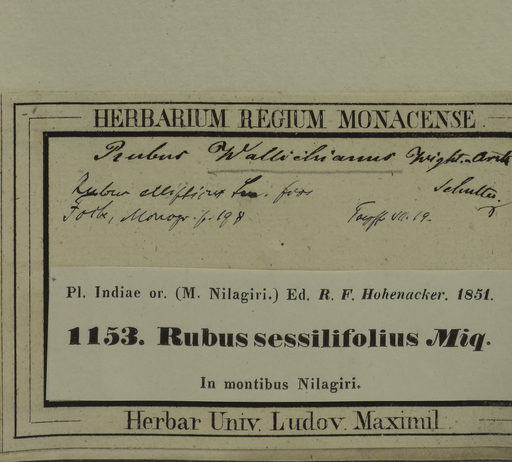 HERBARIUM REGIUM MONACENSE.
Rubus Wallichianus Wight. Arn
Rubus ellipticus Sm.
Schultes.
Focke, Monogr. p. 198
VII. 19.
Pl. Indiae or. (M. Nilagiri.) Ed. R. F. Hohenacker. 1851.
1153. Rubus sessilifolius Miq.
In montibus Nilagiri.
Herbar Univ. Ludov. Maximil